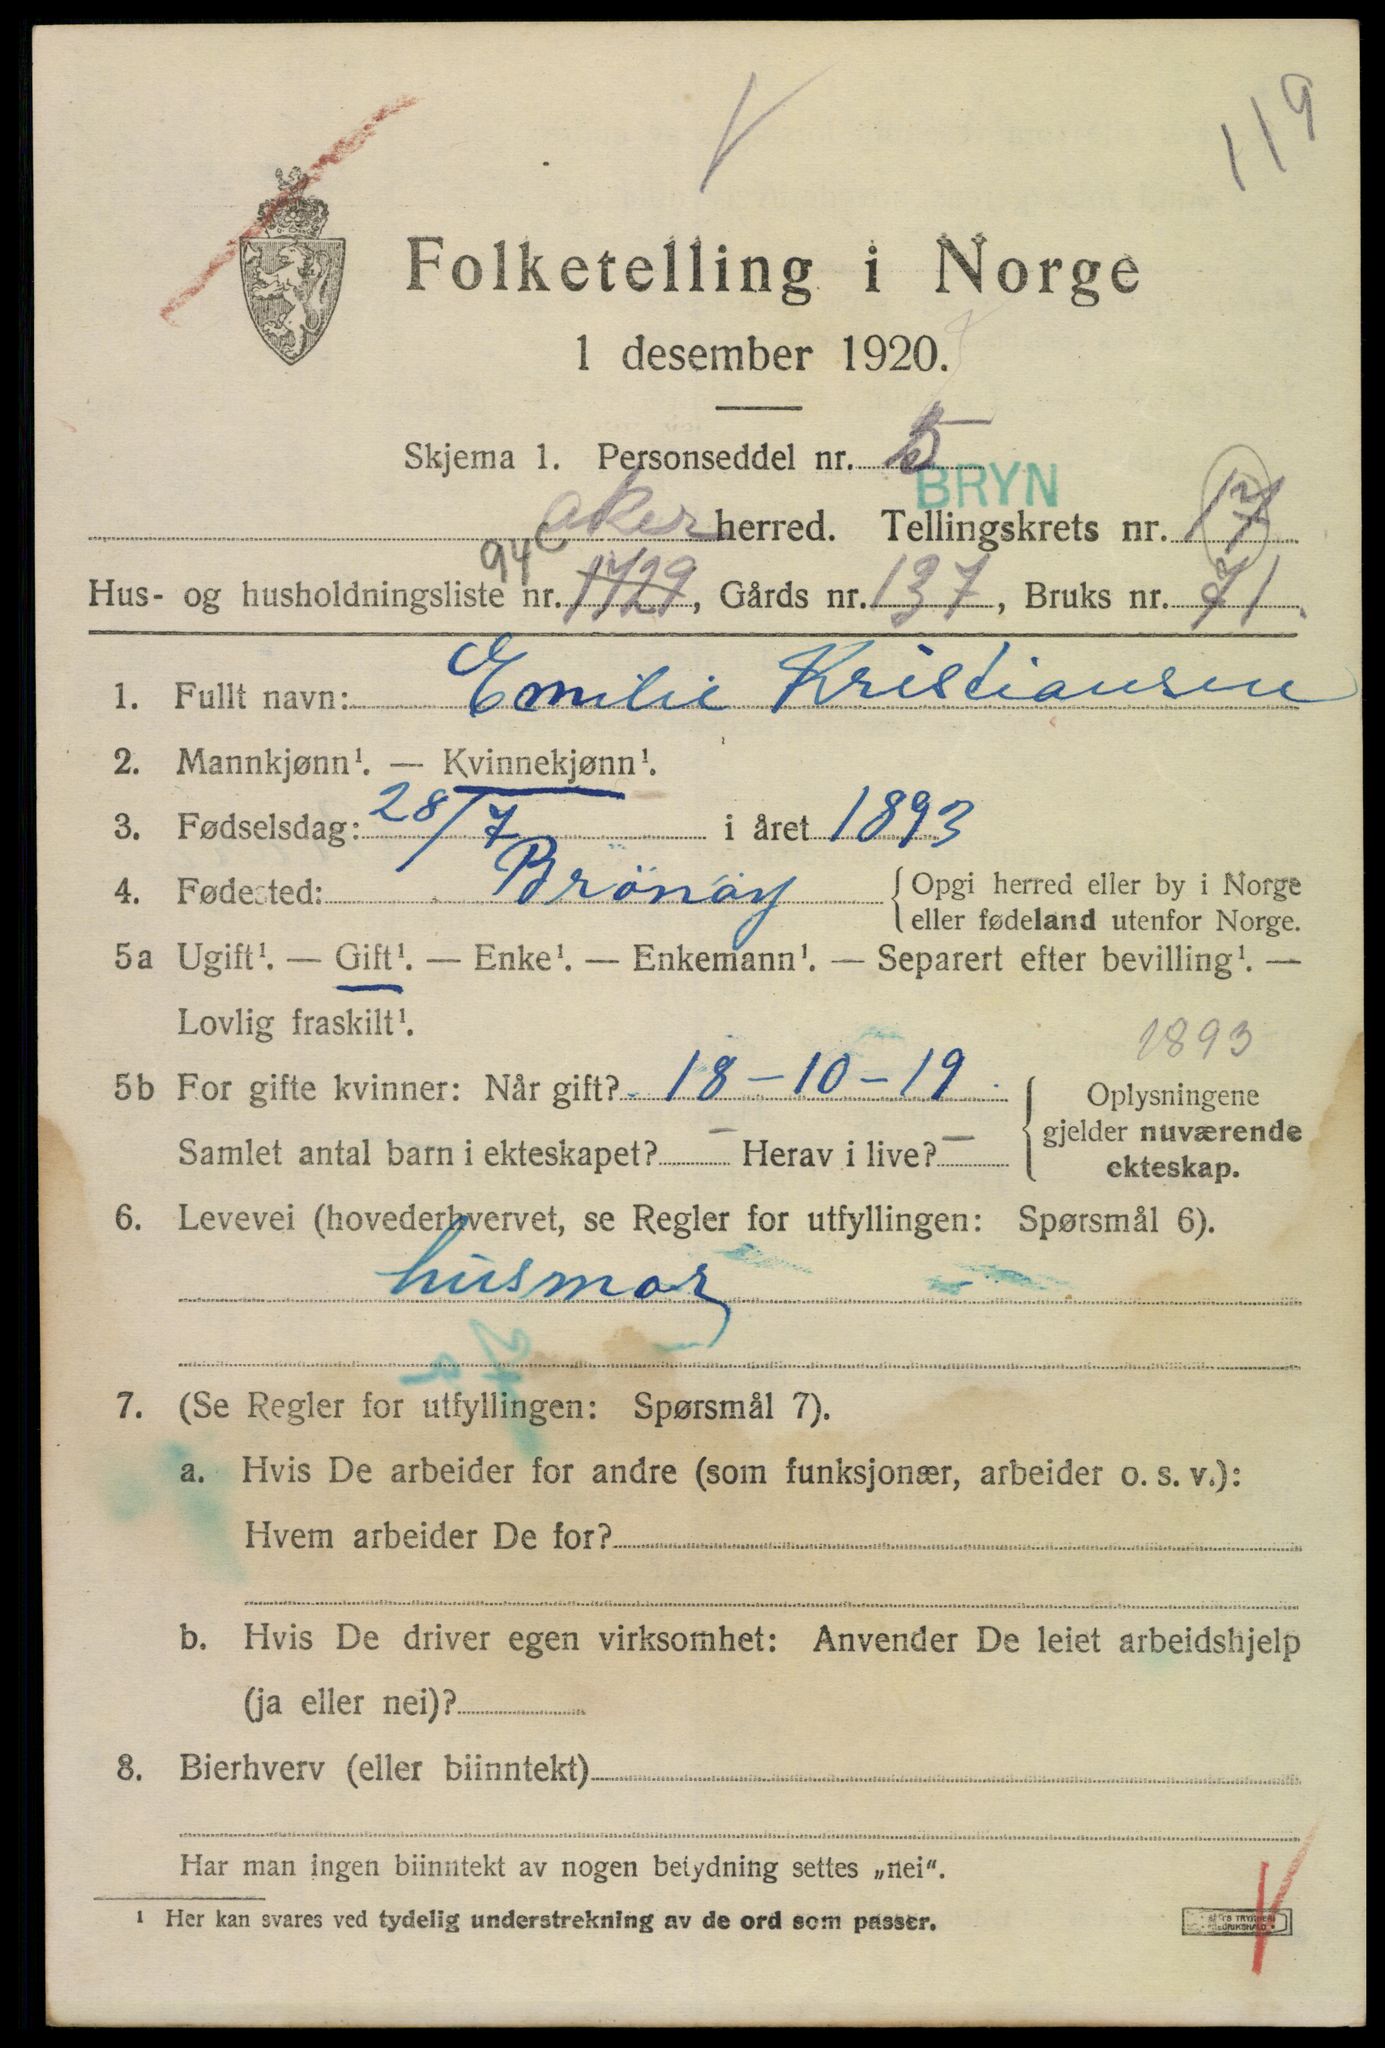 119
Folketelling i Norge
1 desember 1920.
Skjema 1. Personseddel nr. 5
BRYN
aker herred. Tellingskrets nr. 17
94
Hus- og husholdningsliste nr. 1729, Gårds nr. 137, Bruks nr. 71.
1. Fullt navn: Emilie Kristiansen
2. Mannkjønn¹. — Kvinnekjønn¹.
3. Fødselsdag: 28/7 i året 1893
4. Fødested: Brönöy { Opgi herred eller by i Norge
eller fødeland utenfor Norge.
5a Ugift¹. — Gift¹. — Enke¹. — Enkemann¹. — Separert efter bevilling¹. —
Lovlig fraskilt¹.
1893
5b For gifte kvinner: Når gift? 18-10-19 { Oplysningene
gjelder nuværende
ekteskap.
Samlet antal barn i ekteskapet? — Herav i live? —
6. Levevei (hovederhvervet, se Regler for utfyllingen: Spørsmål 6).
husmor
7. (Se Regler for utfyllingen: Spørsmål 7).
a. Hvis De arbeider for andre (som funksjonær, arbeider o. s. v.):
Hvem arbeider De for?
b. Hvis De driver egen virksomhet: Anvender De leiet arbeidshjelp
(ja eller nei)?
8. Bierhverv (eller biinntekt)
Har man ingen biinntekt av nogen betydning settes „nei“.
¹ Her kan svares ved tydelig understrekning av de ord som passer.